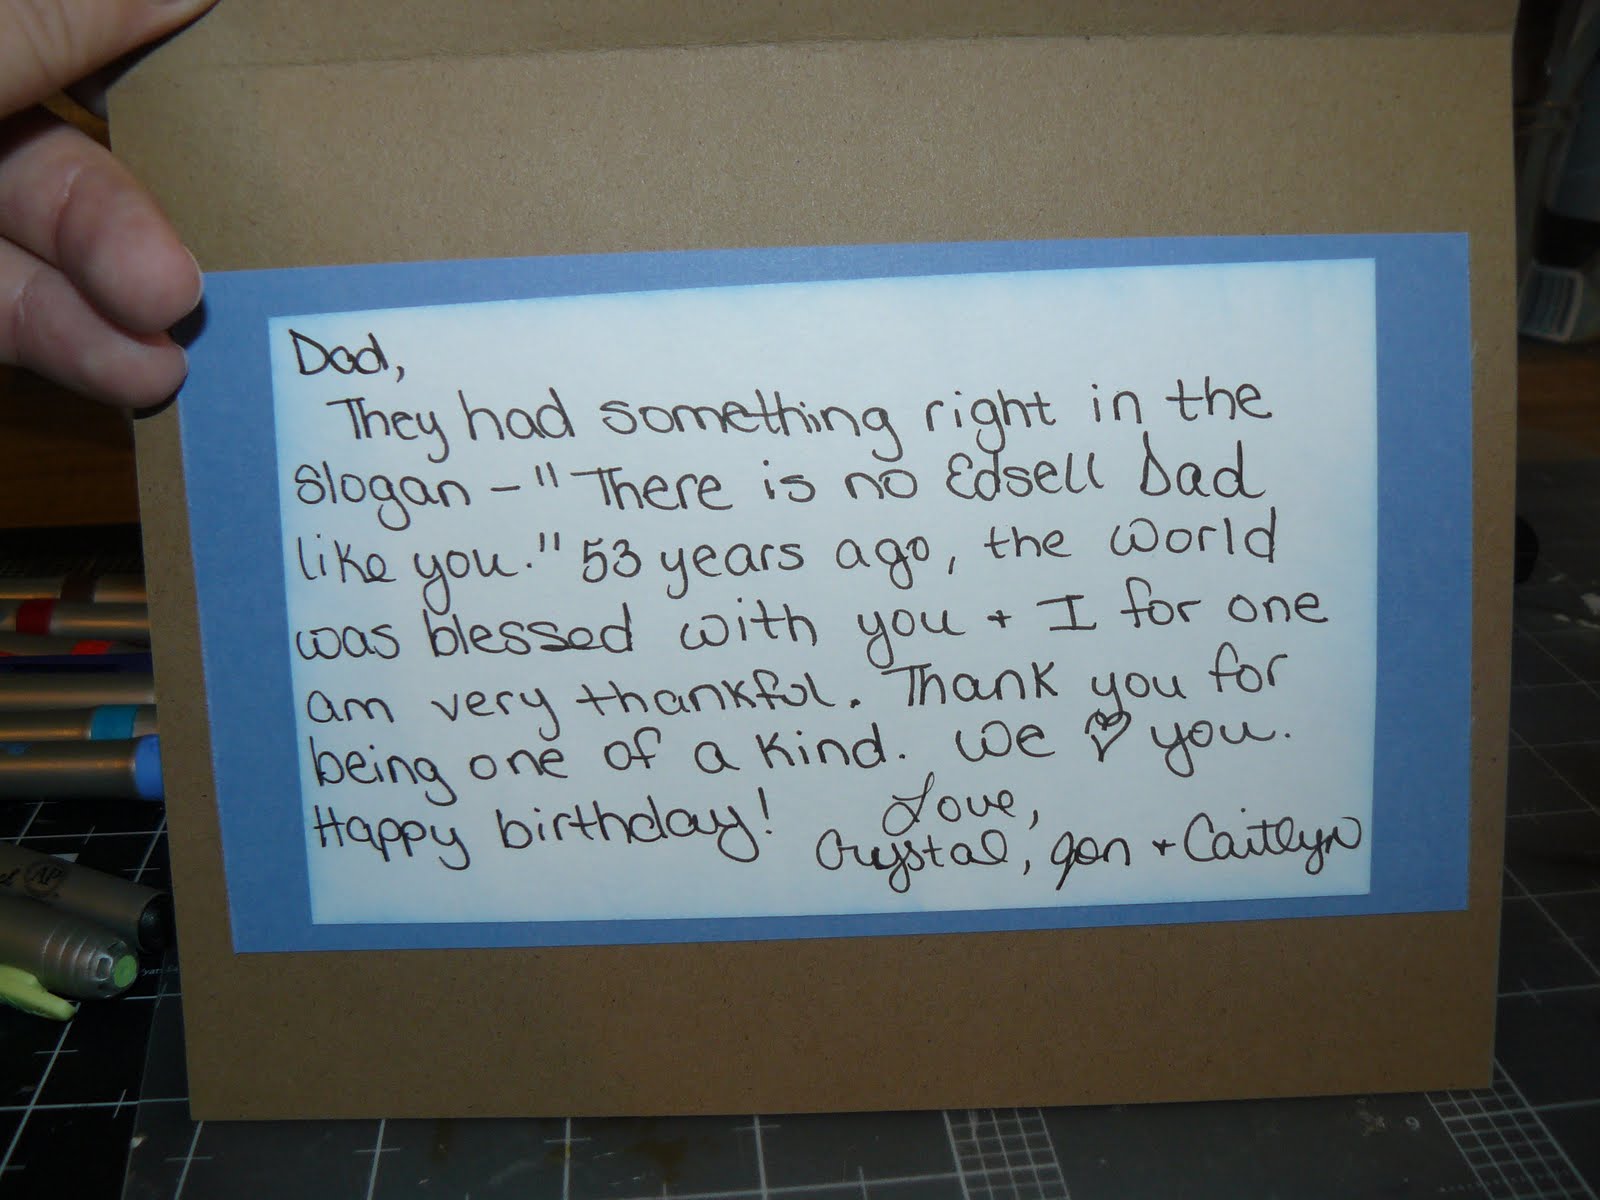 Dad,
They had something right in the
slogan - "There is no Edsell Dad
like you." 53 years ago, the world
was blessed with you + I for one
am very thankful. Thank you for
being one of a kind. We ♡ you.
Happy birthday! Love,
Crystal, Jon + Caitlyn